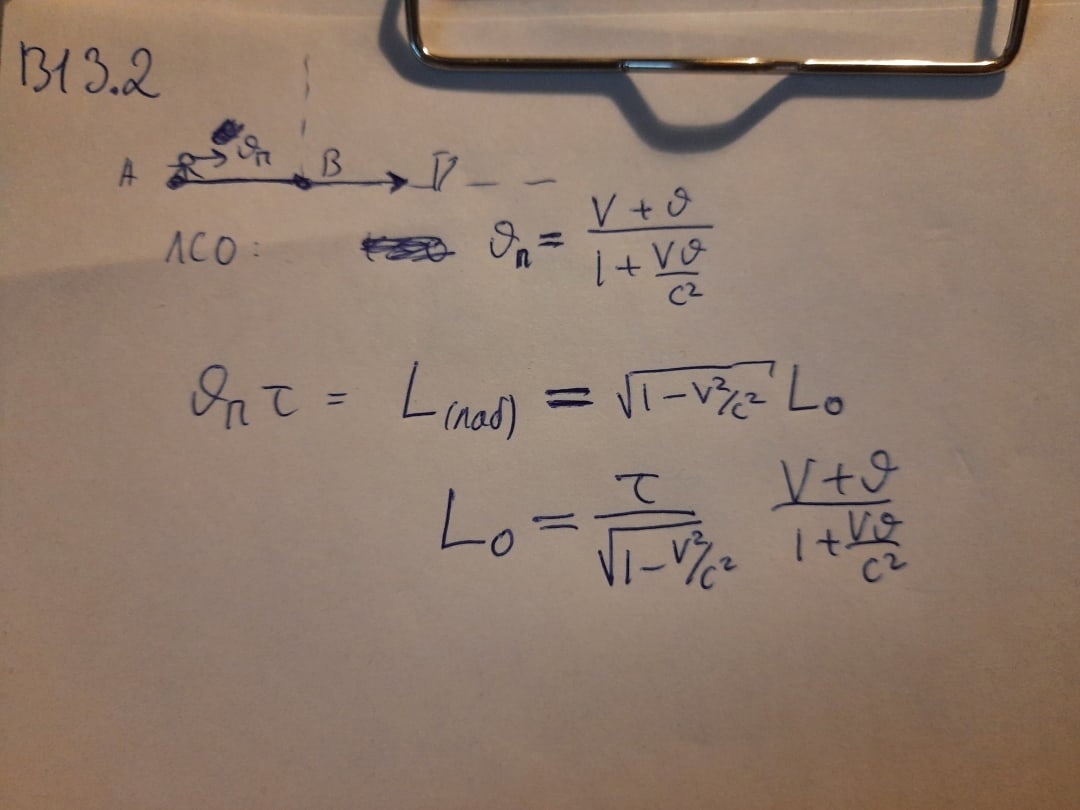 В13.2
A ϑₙ B V
ЛСО: ϑₙ = (V + ϑ) / (1 + Vϑ/c²)
ϑₙ τ = L₍лаб₎ = √(1 − V²/c²) L₀
L₀ = τ / √(1 − V²/c²) (V + ϑ) / (1 + Vϑ/c²)